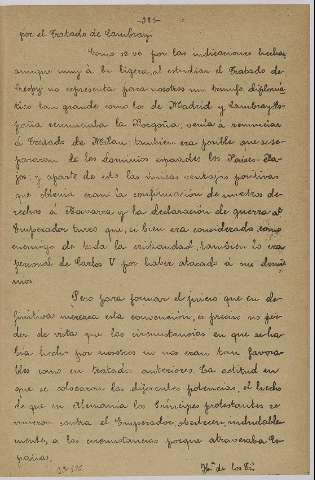 -285-
por el Tratado de Cambray.
Como se ve por las indicaciones hechas,
aunque muy á la ligera, al estudiar el Tratado de
Crespy no representa para nosotros un triunfo diplomá
tico tan grande como los de Madrid y Cambray. Es-
paña renunciaba la Borgoña, venía á renunciar
á Estado de Milan, tambien era posible que se se-
pararan de los dominios españoles los Paises-Ba-
jos, y aparte de esto las únicas ventajas positivas
que obtenia eran la confirmación de nuestros de-
rechos á Navarra y la declaración de guerra al
Emperador turco que, si bien era considerado como
enemigo de toda la cristiandad, tambien lo era
personal de Carlos V por haber atacado á sus domi
nios.
Pero para formar el juicio que en de-
finitiva merezca esta convención, es preciso no per-
der de vista que las circunstancias en que se ha-
bia hecho por nosotros no eran tan favora-
bles como en tratados anteriores. La actitud en
que se colocaron las diferentes potencias, el hecho
de que en Alemania los Príncipes protestantes se
unieron contra el Emperador, obedecen, indudable-
mente, a las circunstancias porque atravesaba Es-
paña.
Hº de los Rí